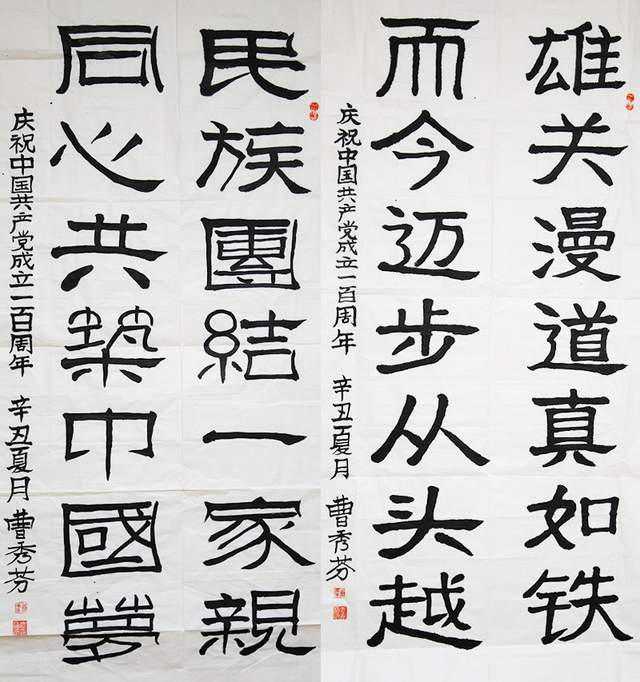 雄关漫道真如铁
而今迈步从头越
庆祝中国共产党成立一百周年 辛丑夏月 曹秀芬
民族團結一家親
同心共築中國夢
庆祝中国共产党成立一百周年 辛丑夏月 曹秀芬